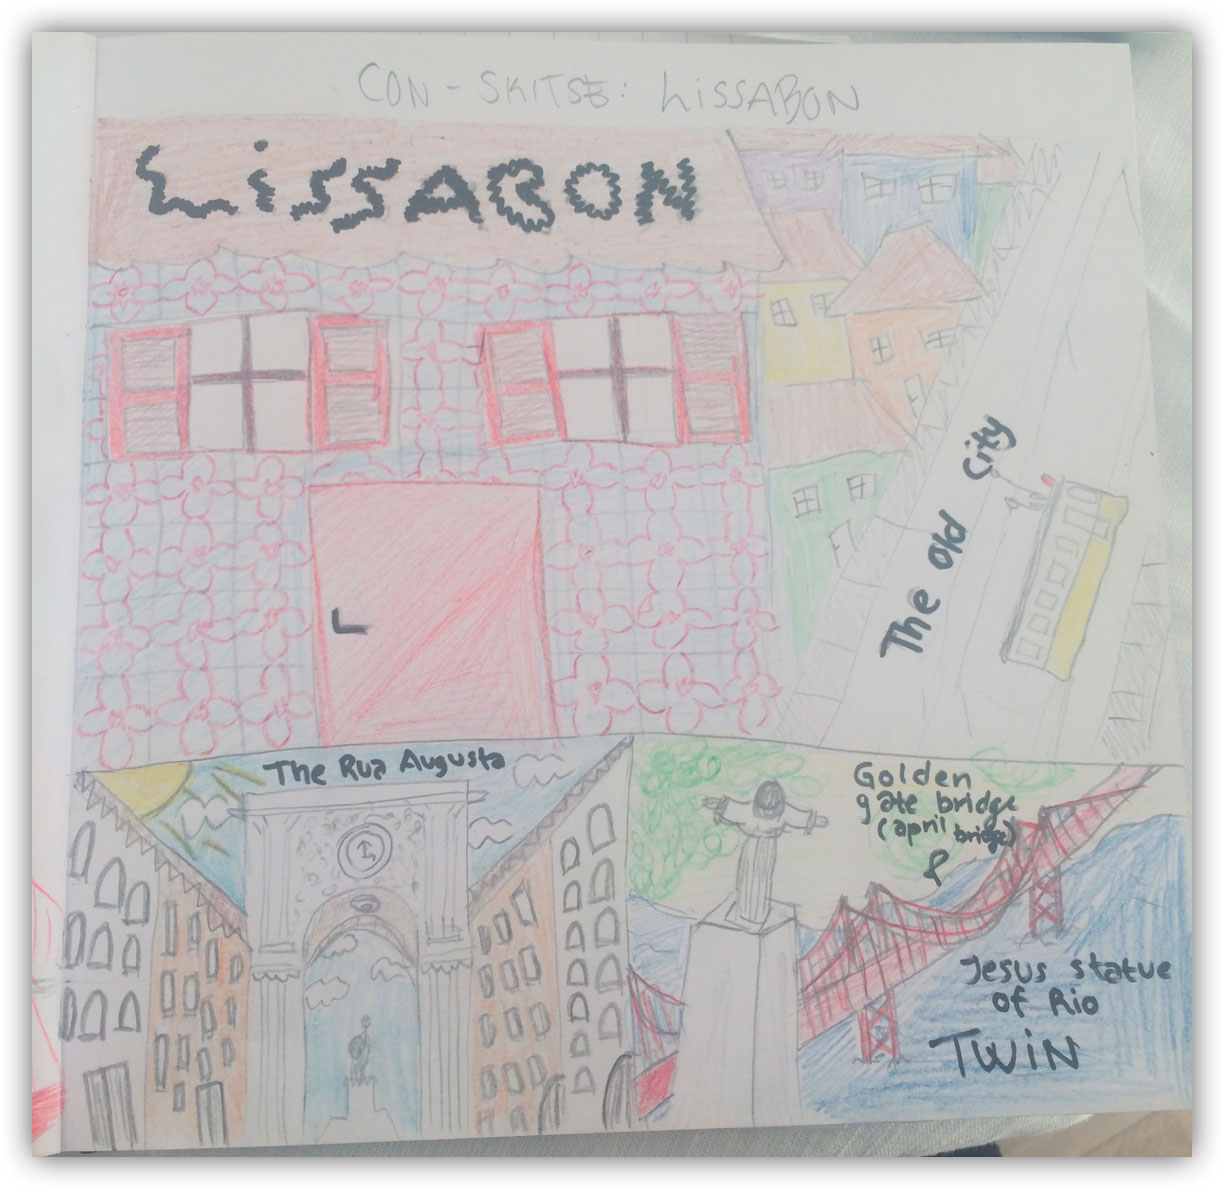 CON - SKITSE: LISSABON
LiSSABON
The Old City
The Rua Augusta
Golden
gate bridge
(april bridge)
Jesus statue
of Rio
TWiN